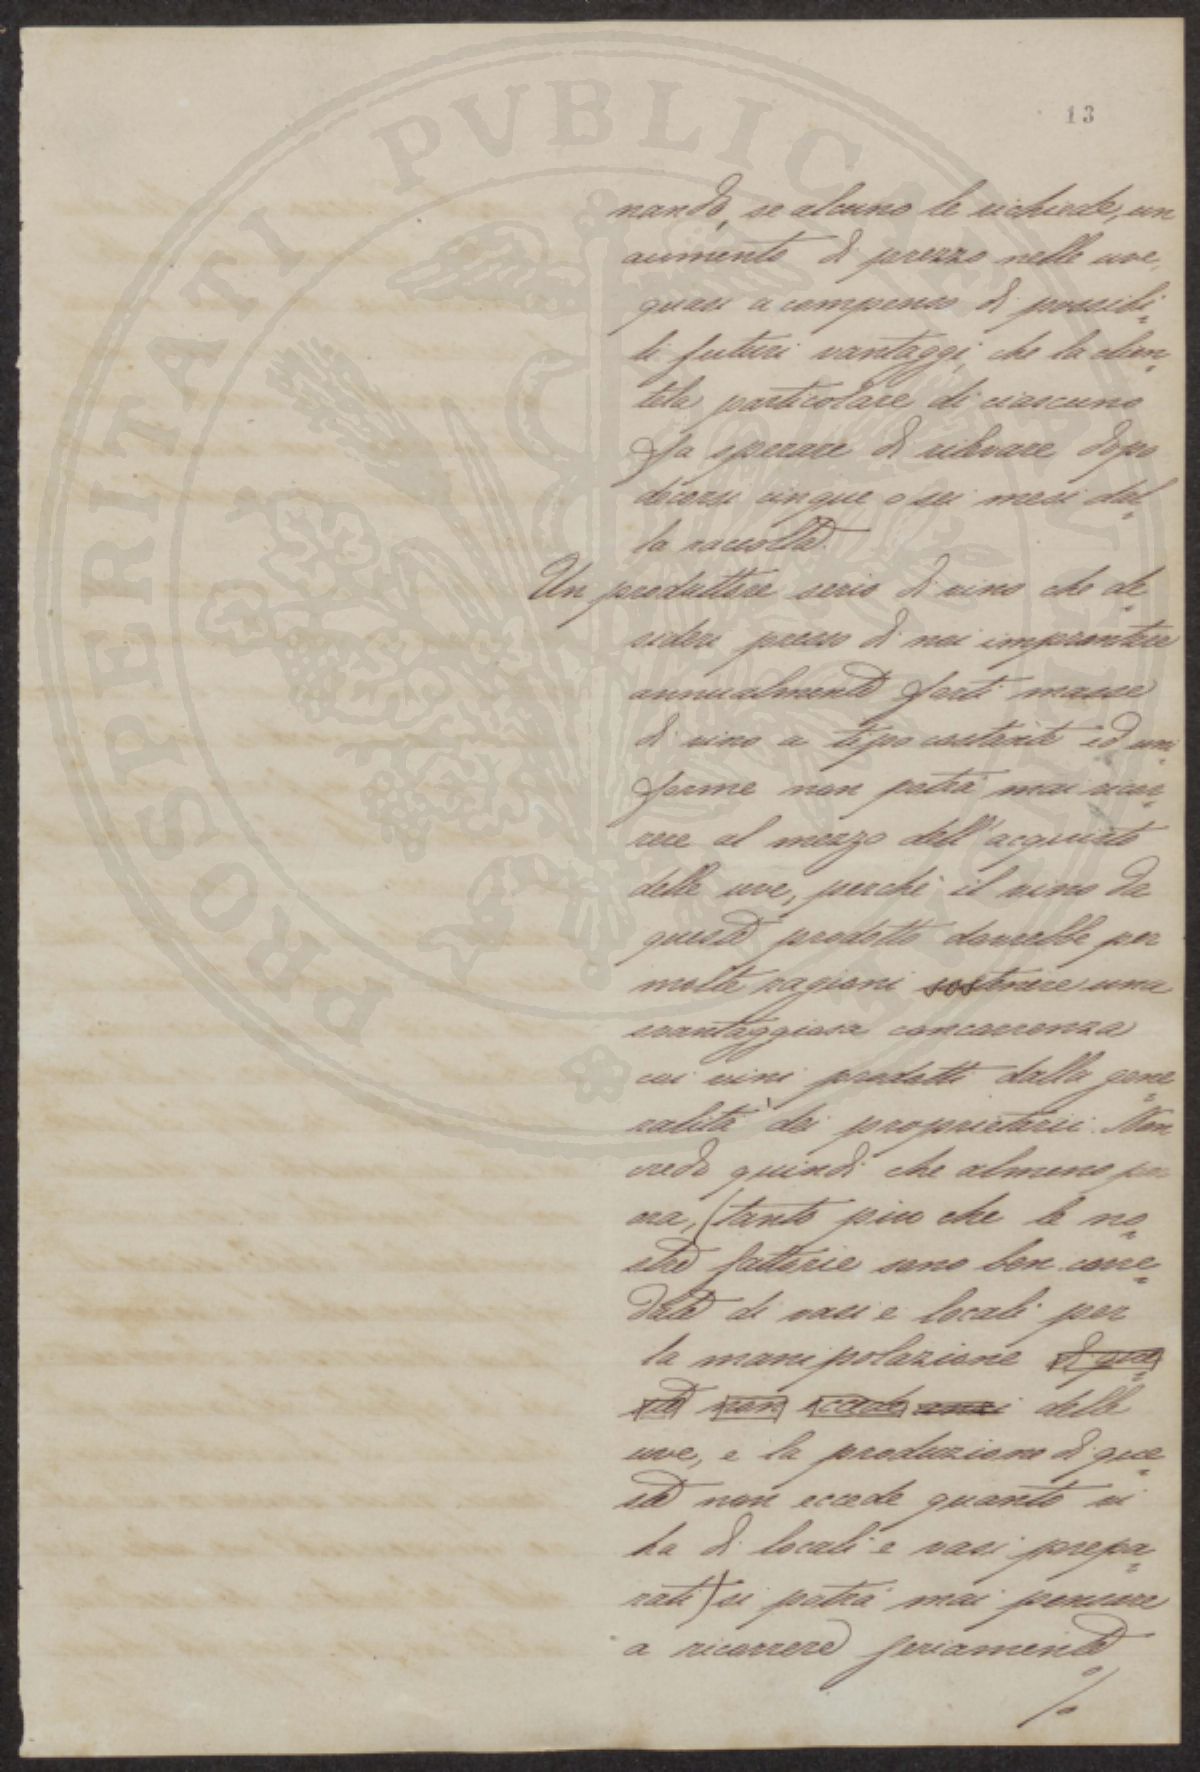 13
PROSPERITATI PVBLICAE AVGENDAE
nando, se alcuno le richiede, un
aumento di prezzo nelle uve,
quasi a compenso di possibi=
li futuri vantaggi, che la clien=
tela particolare di ciascuno
fa sperare di rilevare dopo
decorsi cinque o sei mesi dal=
la raccolta.
Un produttore serio di vino che de=
sideri presso di noi impiantare
annualmente forti masse
di vino a tipo costante ed uni=
forme non potrà mai ricor=
rere al mezzo dell'acquisto
delle uve, perchè il vino da
queste prodotto dovrebbe per
molte ragioni sostenere una
svantaggiosa concorrenza
coi vini prodotti dalla gene=
ralità dei proprietarii. Non
credo quindi che almeno per
ora, (tanto più che le no=
stre fattorie sono ben corre=
date di vasi e locali per
la manipolazione di que=
ste non eccede anzi delle
uve, e la produzione di que=
ste non eccede quanto vi
ha di locali e vasi prepa=
rati) si potrà mai pensare
a ricorrere seriamente